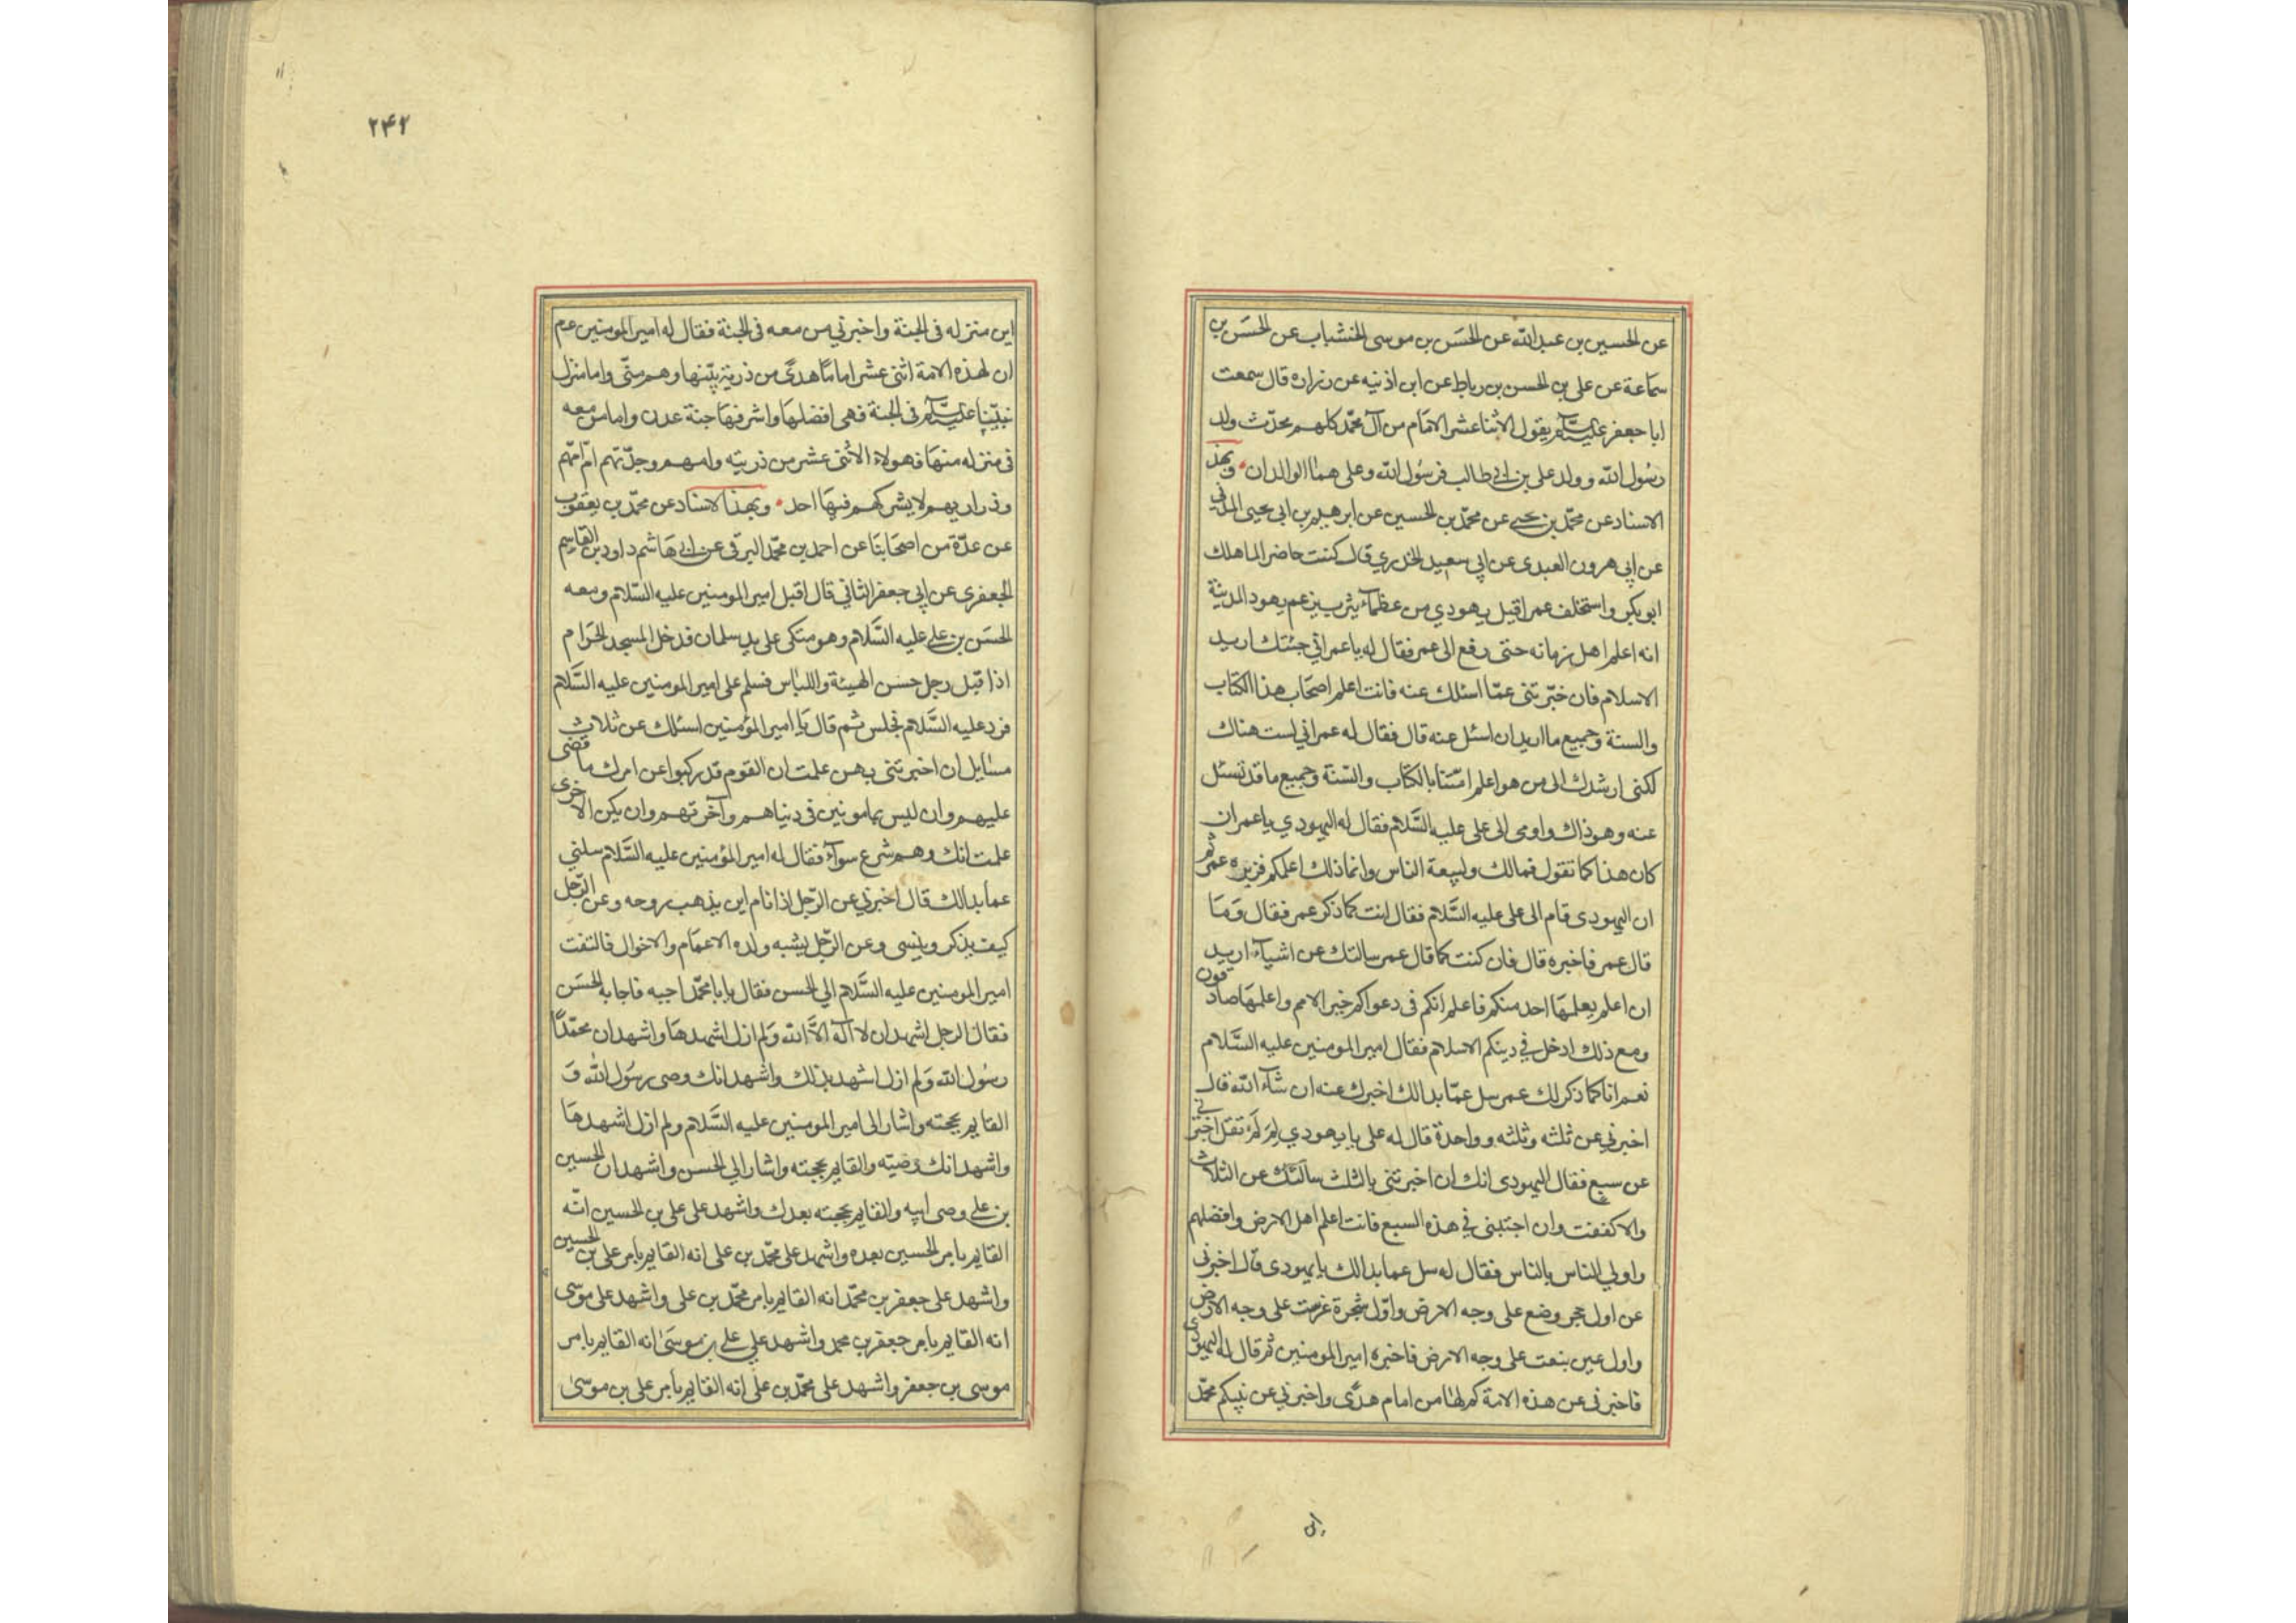 عن الحسين بن عبد الله عن الحسَن بن موسى الخشاب عن الحسَن بن
سماعة عن على بن الحسن بن رباط عن ابن اذنيه عن زراره قال سمعت
ابا جعفر عليه السلام يقول الاثنا عشر الامام من آل محمّد كلهم محدّث ولد
رسُول الله و ولد على بن ابي طالب فرسُول الله وعلى هما الوالدان وبهذا
الاسناد عن محمّد بن يحيى عن محمّد بن الحسين عن ابرهيم بن ابي يحيى المدني
عن ابي هرون العبدى عن ابي سعيد الخدري قال كنت حاضر الما هلك
ابو بكر واستخلف عمر اقبل يهودي من عظمآء يثرب يزعم يهود المدينة
انه اعلم اهل زمانه حتى رفع الى عمر فقال له يا عمر اني جئتك اريد
الاسلام فان خبّرتنى عمّا اسئلك عنه فانت اعلم اصحَاب هذا الكتاب
والسنة وجميع ما اريد ان اسئل عنه قال فقال له عمر اني لست هناك
لكنى ارشدك الى من هو اعلم امّتنا بالكتاب والسّنة وجميع ما قد تسئل
عنه وهو ذاك واومى الى على عليه السَّلام فقال له اليهودي يا عمر ان
كان هذا كما تقول فمالك ولبيعة الناس وانما ذلك اعلمكم فزبره عمر ثم
ان اليهودى قام الى على عليه السَّلام فقال انت كما ذكر عمر فقال وَمَا
قال عمر فاخبره قال فان كنت كما قال عمر سالتك عن اشياء اريد
ان اعلم يعلمهَا احد منكم فاعلم انكم فى دعواكم خير الامم واعلمهَا صادقون
ومع ذلك ادخل في دينكم الاسلام فقال امير المومنين عليه السَّلام
نعم انا كما ذكر لك عمر سل عمّا بدا لك اخبرك عنه ان شآء الله قال
اخبرني عن ثلثه وثلثه وواحدة قال له على يا يهودي لِمَ لَمْ تقل اخبرني
عن سبع فقال اليهودى انك ان اخبرتنى بالثلث سالتك عن الثلاث
والا كففت وان اجبتنى في هذه السبع فانت اعلم اهل الارض وافضلهم
واولي الناس بالناس فقال له سل عما بدا لك يا يهودى قال اخبرنى
عن اول حجر وضع على وجه الارض واوّل شجرة غرست على وجه الارض
واول عين نبعت على وجه الارض فاخبره امير المومنين ثم قال له اليهودى
فاخبرنى عن هذه الامة كم لها من امام هدًى واخبرني عن نبيكم محمّد
اين
٢۴٢
اين منزله فى الجنة واخبرني من معه فى الجنة فقال له امير المومنين عم
ان لهذه الامة اثنى عشر اماما هدًى من ذرية نبيّنها وهم منّى واما منزل
نبيّنا عليه السلام فى الجنة فهى افضلهَا واشرفهَا جنة عدن واما من معه
فى منزله منهَا فهولاء الاثنى عشر من ذريته وامهم وجدّتهم امّ امّهم
وذراريهم لا يشركهم فيهَا احد وبهذا الاسناد عن محمّد بن يعقوب
عن عدّة من اصحَابنَا عن احمد بن محمّد البرقى عن ابي هَاشم داود بن القاسم
الجعفرى عن ابي جعفر الثاني قال اقبل امير المومنين عليه السّلام ومعه
الحسَن بن على عليه السَّلام وهو متكى على يد سلمان فدخل المسجد الحرام
اذا قبل رجل حسن الهيئة واللباس فسلم على امير المومنين عليه السَّلام
فرد عليه السَّلام فجلس ثم قال يَا امير المؤمنين اسئلك عن ثلاث
مسَايل ان اخبرتنى بهن علمت ان القوم قد ركبوا عن امرك ما قضى
عليهم وان ليس بمامونين فى دنياهم وآخرتهم وان يكن الاخرى
علمت انك وهم شرع سوآء فقال له امير المؤمنين عليه السَّلام سلني
عما بدا لك قال اخبرني عن الرّجل اذا نام اين يذهب روحه وعن الرّجل
كيف يذكر وينسى وعن الرّجل يشبه ولده الاعمَام والاخوال فالتفت
امير المومنين عليه السَّلام الي الحسن فقال يا با محمّد اجبه فاجابه الحسَن
فقال الرجل اشهد ان لا آله الّا الله وَلم ازل اشهدهَا واشهد ان محمّدًا
رسُول الله وَلم ازل اشهد بذلك واشهد انك وصى رسُول الله وَ
القايم بحجته واشار الى امير المومنين عليه السَّلام ولم ازل اشهدهَا
واشهد انك وصيّه والقايم بحجته واشار الي الحسن واشهد ان الحسين
بن على وصى ابيه والقايم بحجته بعدك واشهد على على بن الحسين انّه
القايم بامر الحسين بعده واشهد على محمّد بن على انه القايم بامر على بن الحسين
واشهد على جعفر بن محمّد انه القايم بامر محمّد بن على واشهد على موسى
انه القايم بامر جعفر بن محمد واشهد علي علي بن موسَىٰ انه القايم بامر
موسى بن جعفر واشهد على محمّد بن على انه القايم بامر على بن موسىٰ